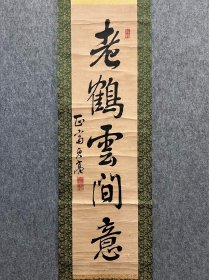 老鶴雲間意